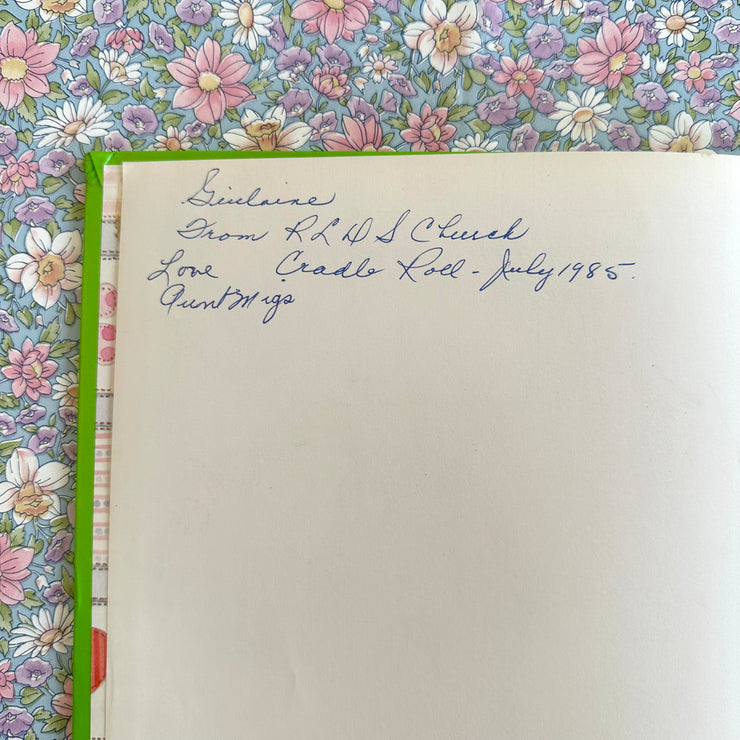 From R L D S Church
Love Cradle Roll - July 1985.
Aunt Migs